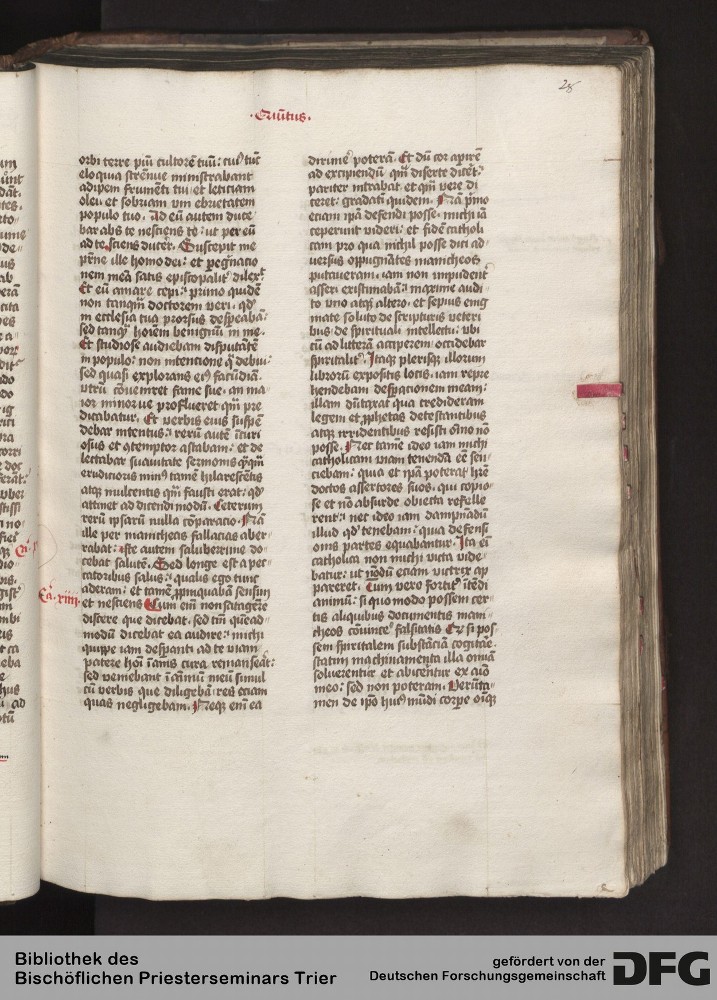 28
orbi terre piū cultorē tuū: cuiꝰ tūc
eloquia strēnue ministrabant
adipem frumēti tui et leticiam
olei et sobriam vini ebrietatem
populo tuo. Ad eū autem duce
bar abs te nesciens te: ut per eū
ad te sciens ducer. Suscepit me
p̄rne ille homo dei: et pegrīnatio
nem meā satis episcopalit̄ dilex̄
Et eū amare cepi: primo quidē
non tanqm̄ doctorem veri. qd̓
in ecclesia tua prorsus despeabā:
sed tanqȝ hoīem benignū in me.
Et studiose audiebam disputātē
in populo: non intentione q̄ debui:
sed quasi explorans eiꝰ facūdiā.
utrū cōueniret fame sue. an ma
ior minorue proflueret qm̄ pre
dicabatur. Et verbis eius suspē
debar intentus: rerū autē īcuri
osus et ꝯtemptor astabam: et de
lectabar suauitate sermonis qᷓqm̄
eruditioris minꝰ tamē hilarescētis
atqȝ mulcentis qm̄ fausti erat: qd̓
attinet ad dicendi modū. Ceterum
rerū ipsarū nulla cōparatio. Nā
ille per manicheas fallacias aber
rabat: iste autem saluberrime do
cebat salutē. Sed longe est a pec
catoribus salus: qualis ego tunc
aderam: et tamē ppinquabā sensim
Ca. xiiij. et nesciens Cum em̄ non satagerē
discere que dicebat. sed tm̄ quēad
modū dicebat ea audire: michi
quippe iam despanti ad te viam
patere hoī īanis cura remanserat:
sed veniebant ī aīmū meū simul
cū verbis que diligebā. res eciam
quas negligebam. Neqȝ em̄ ea
dirimē poterā. Et dū cor apirē
ad excipiendū qm̄ diserte dicēt:
pariter intrabat et qm̄ vere di
ceret: gradatī quidem. Nā p̄mo
eciam ipā defendi posse. michi iā
ceperunt videri: et fidē catholi
cam pro qua nichil posse dici ad
uersus oppugnātes manicheos
putaueram. iam non impudent̄
asseri existimabā: maxime audi
to vno atqȝ altero. et sepius enig
mate soluto de scripturis veteri
bus de spirituali intellectu: vbi
cū ad litterā acciperem occidebar
spiritalit̄. Itaqȝ plerisqȝ illorum
librorū expositis locis: iam repre
hendebam despacionem meam:
illam dūtaxat qua credideram
legem et pphetas detestantibus
atqȝ irridentibus resisti oīno nō
posse. Nec tamē ideo iam michi
catholicam viam tenendā eē sen
ciebam: quia et ipā poterat hrē
doctos assertores suos. qui copio
se et nō absurde obiecta refelle
rent: nec ideo iam dampnādū
illud qd̓ tenebam: quia defensi
onis partes equabantur. Ita em̄
catholica non michi victa vide
batur: ut nōdū eciam victrix ap
pareret. Cum vero fortit̄ ītēdi
animū: si quo modo possem cer
tis aliquibus documentis mani
cheos cōuincē falsitatis. Et si pos
sem spiritalem substāciā cogitāe.
statim machinamenta illa omīa
soluerentur et abicerētur ex aīo
meo: sed non poteram. Verūta
men de ipō huiꝰ mūdi corpe oīqȝ
Bibliothek des
Bischöflichen Priesterseminars Trier
gefördert von der
Deutschen Forschungsgemeinschaft
DFG